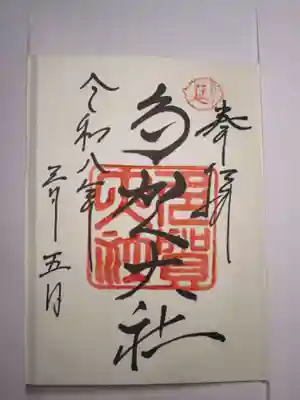 奉拝
多賀大社
多賀大社
令和八年
三月五日